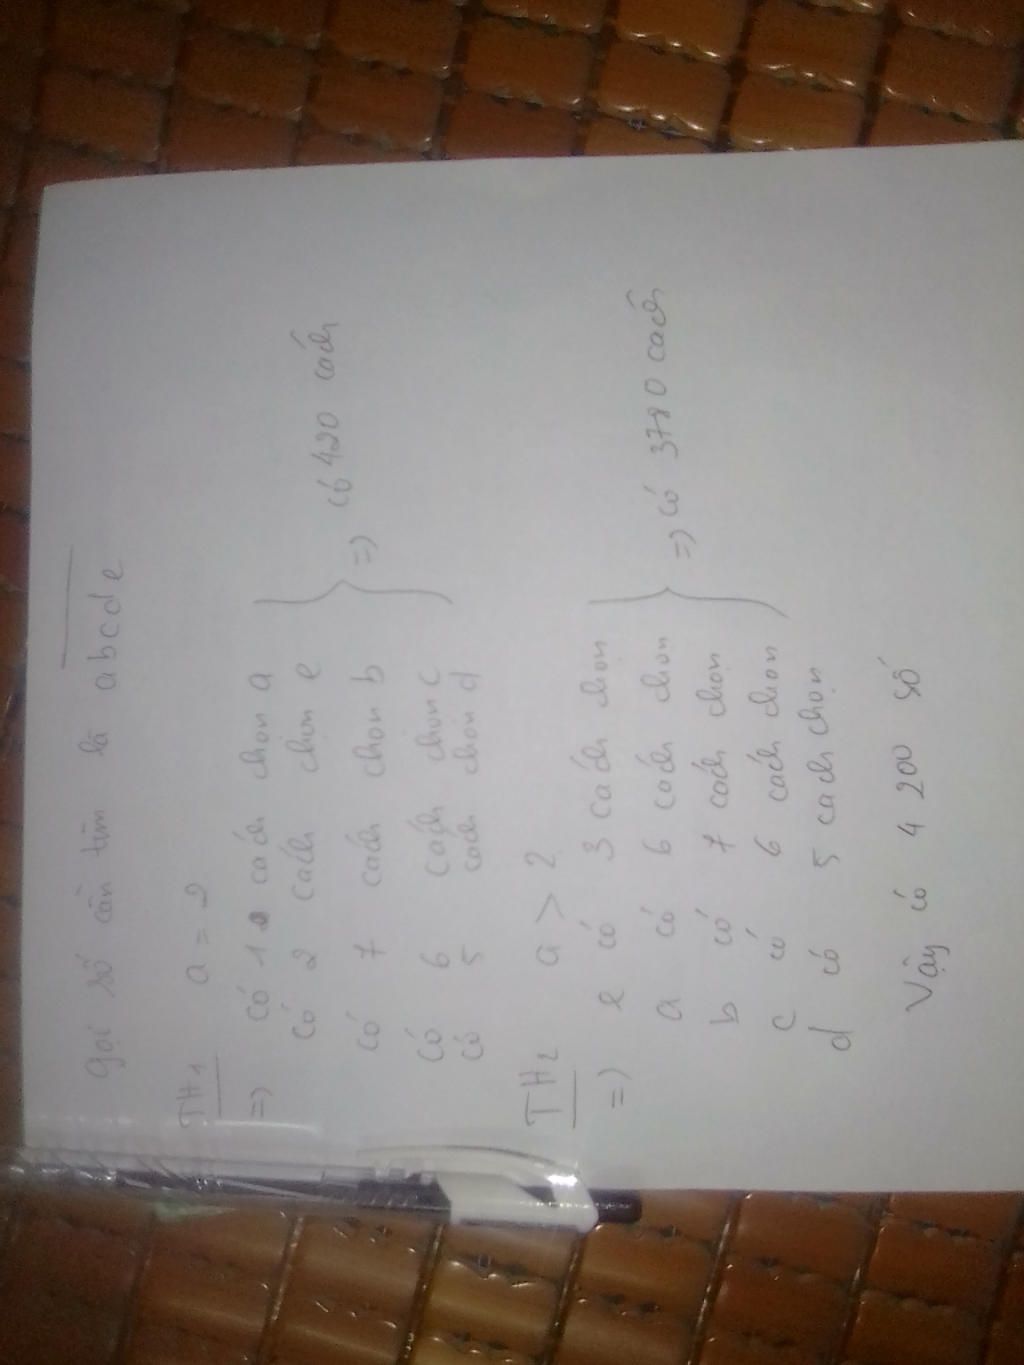 gọi số cần tìm là abcde
TH1 a = 2
=) có 1 cách chọn a
có 2 cách chọn e
có 7 cách chọn b
có 6 cách chọn c
có 5 cách chọn d
=) có 420 cách
TH2 a > 2
=) e có 3 cách chọn
a có 6 cách chọn
b có 7 cách chọn
c có 6 cách chọn
d có 5 cách chọn
=) có 3780 cách
Vậy có 4 200 số